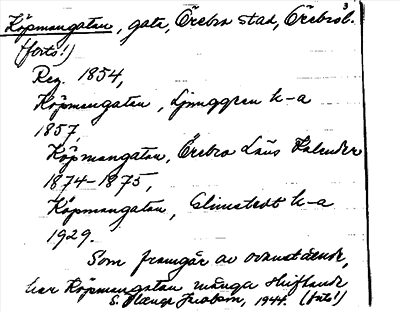 3.
Köpmangatan, gata, Örebro stad, Örebro l.
(forts!)
Reg. 1854,
Köpmangatan, Ljunggren k-a
1857,
Köpmangatan, Örebro Läns Kalender
1874-1875,
Köpmangatan, Elmstedt k-a
1929.
Som framgår av ovanstående,
har Köpmangatan många skiftande
S. Jacobson, 1944. (forts!)